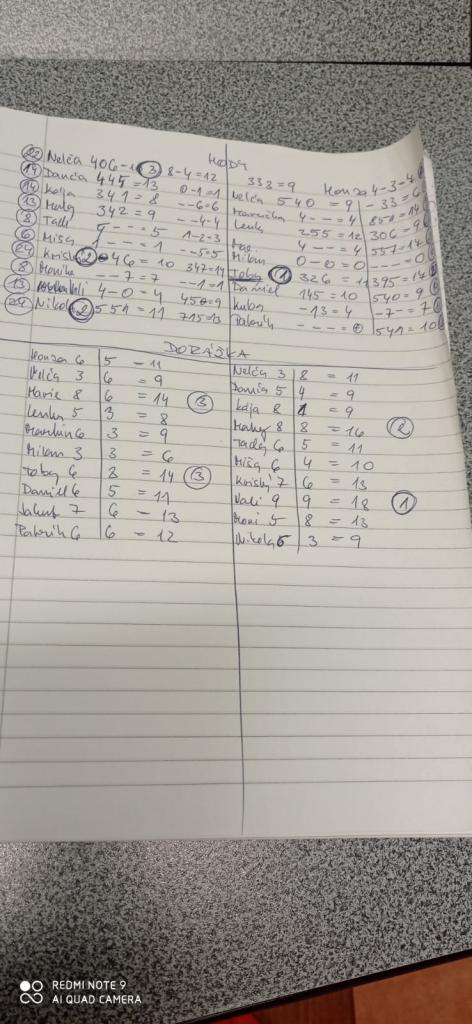 HODY
22 Nelča 406-1 3 8-4=12
19 Danča 445=13 0-1=1
14 Kája 341=8 --6=6
13 342=9 --4=4
8 5 1-2=3
6 Míša 1 --5=5
29 2-46=10 347=14
8 Monika --7=7 --1=1
13 4-0=4 450=9
24 Nikola 2 551=11 715=13
333=9 Honza 4-3-4
540=9 -33=6
4--=4 851=14
Lenk 255=12 306=9
4--=4 557=17
Milan 0-0=0 ----0
Toby 1 326=11 395=17
Daniel 145=10 540=9
Kuba -13=4 -7-=7
Patrik ---- 541=10
DORÁŽKA
Honza 6 5 - 11
Nelča 3 6 = 9
Marie 8 6 = 14 3
Lenka 5 3 = 8
Martin 6 3 = 9
Milan 3 3 = 6
Toby 6 8 = 14 3
Daniel 6 5 = 11
Jakub 7 6 - 13
Patrik 6 6 = 12
Nelča 3 8 = 11
Danča 5 4 = 9
Kája 8 1 = 9
8 8 = 16 2
6 5 = 11
Míša 6 4 = 10
7 6 = 13
Vali 9 9 = 18 1
Moni 5 8 = 13
Nikola 6 3 = 9
REDMI NOTE 9
AI QUAD CAMERA